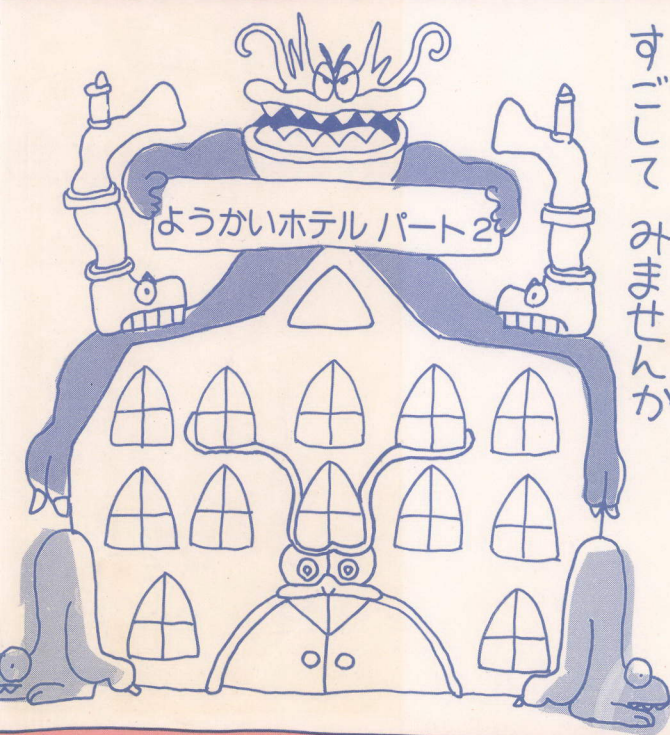 すごして みませんか
ようかいホテル パート2